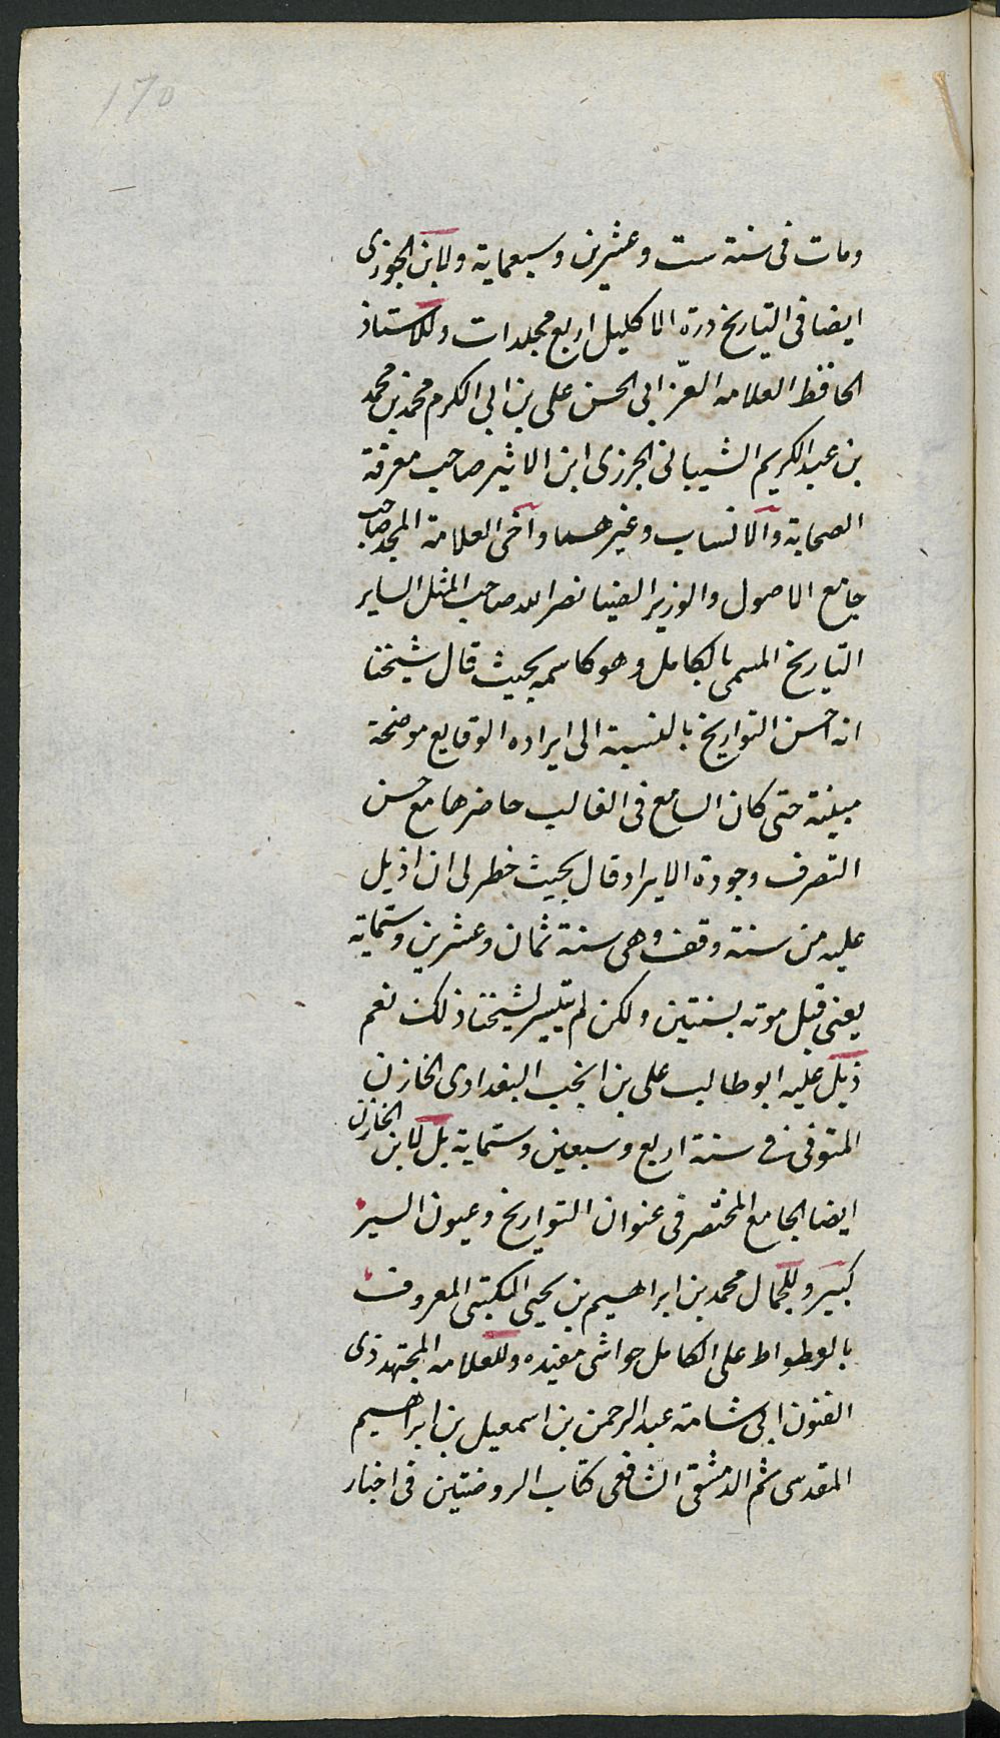 170
ومات فى سنة ست وعشرين وسبعماية ولابن الجوزى
ايضا فى التاريخ درة الاكليل اربع مجلدات وللاستاذ
الحافظ العلامه العزّ ابى الحسن على بن ابى الكرم محمد بن محمد
بن عبد الكريم الشيبانى الجزرى ابن الاثير صاحب معرفة
الصحابة والانساب وغيرهما واخى العلامة المجد صاحب
جامع الاصول والوزير الضيا نصر الله صاحب المثل الساير
التاريخ المسمى بالكامل وهو كاسمه بحيث قال شيخنا
انه احسن التواريخ بالنسبة الى ايراده الوقايع موضحة
مبينة حتى كان السامع فى الغالب حاضرها مع حسن
التصرف وجودة الايراد قال بحيث خطر لى ان اذيل
عليه من سنة وقف وهى سنة ثمان وعشرين وستماية
يعنى قبل موته بسنتين ولكن لم يتيسر لشيخنا ذلك نعم
ذيّل عليه ابو طالب على بن انجب البغدادى الخازن
المتوفى فى سنة اربع وسبعين وستماية بل لابن الخازن
ايضا الجامع المختصر فى عنوان التواريخ وعيون السير
كبير وللجمال محمد بن ابراهيم بن يحيى الكتبى المعروف
بالوطواط على الكامل حواشى مفيده وللعلامه المجتهد ذى
الفنون ابى شامة عبد الرحمن بن اسمعيل بن ابراهيم
المقدسى ثم الدمشقى الشافعى كتاب الروضتين فى اخبار